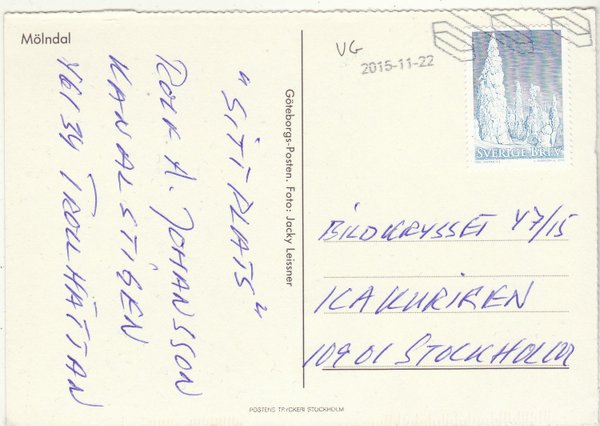 Mölndal
"SITTPLATS"
ROLF A. JOHANSSON
KANALSTIGEN
46134 TROLLHÄTTAN
Göteborgs-Posten. Foto: Jacky Leissner
VG
2015-11-22
SVERIGE BREV
BILDKRYSSET 47/15
ICAKURIREN
10901 STOCKHOLM
POSTENS TRYCKERI STOCKHOLM